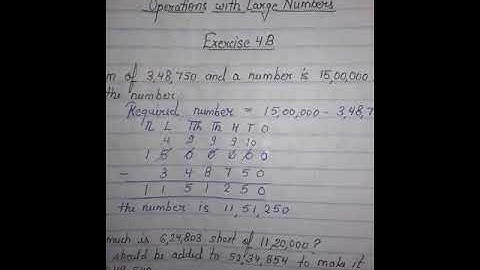 Operations with Large Numbers
Exercise 4B
m of 3,48,750 and a number is 15,00,000
the number
Required number = 15,00,000 - 3,48,7
TL L TTh Th H T O
4 9 9 9 10
1 5 0 0 0 0 0
- 3 4 8 7 5 0
1 1 5 1 2 5 0
the number is 11,51,250
much is 6,24,803 short of 11,20,000?
should be added to 53,34,854 to make it